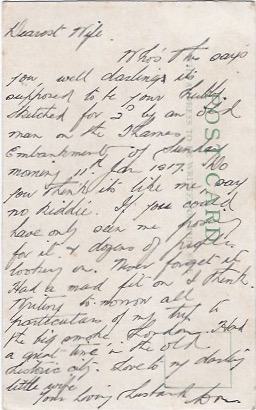 Dearest Wife.
Who's this says
you, well darling its
supposed to be your hubby
sketched for 2d by an old
man on the Thames
Embankment of Sunday
morning 11th Jan 1917. Do
you think its like me, say
no kiddie. If you could
have only seen me
for it & dozens of people
looking on. Never forget it
Had a mad fit on I think.
Writing to-morrow all
particulars of my trip to
the big smoke, London. Had
a great time in the old
historic city. Love to my darling
little wife
Your loving husband
POST CARD